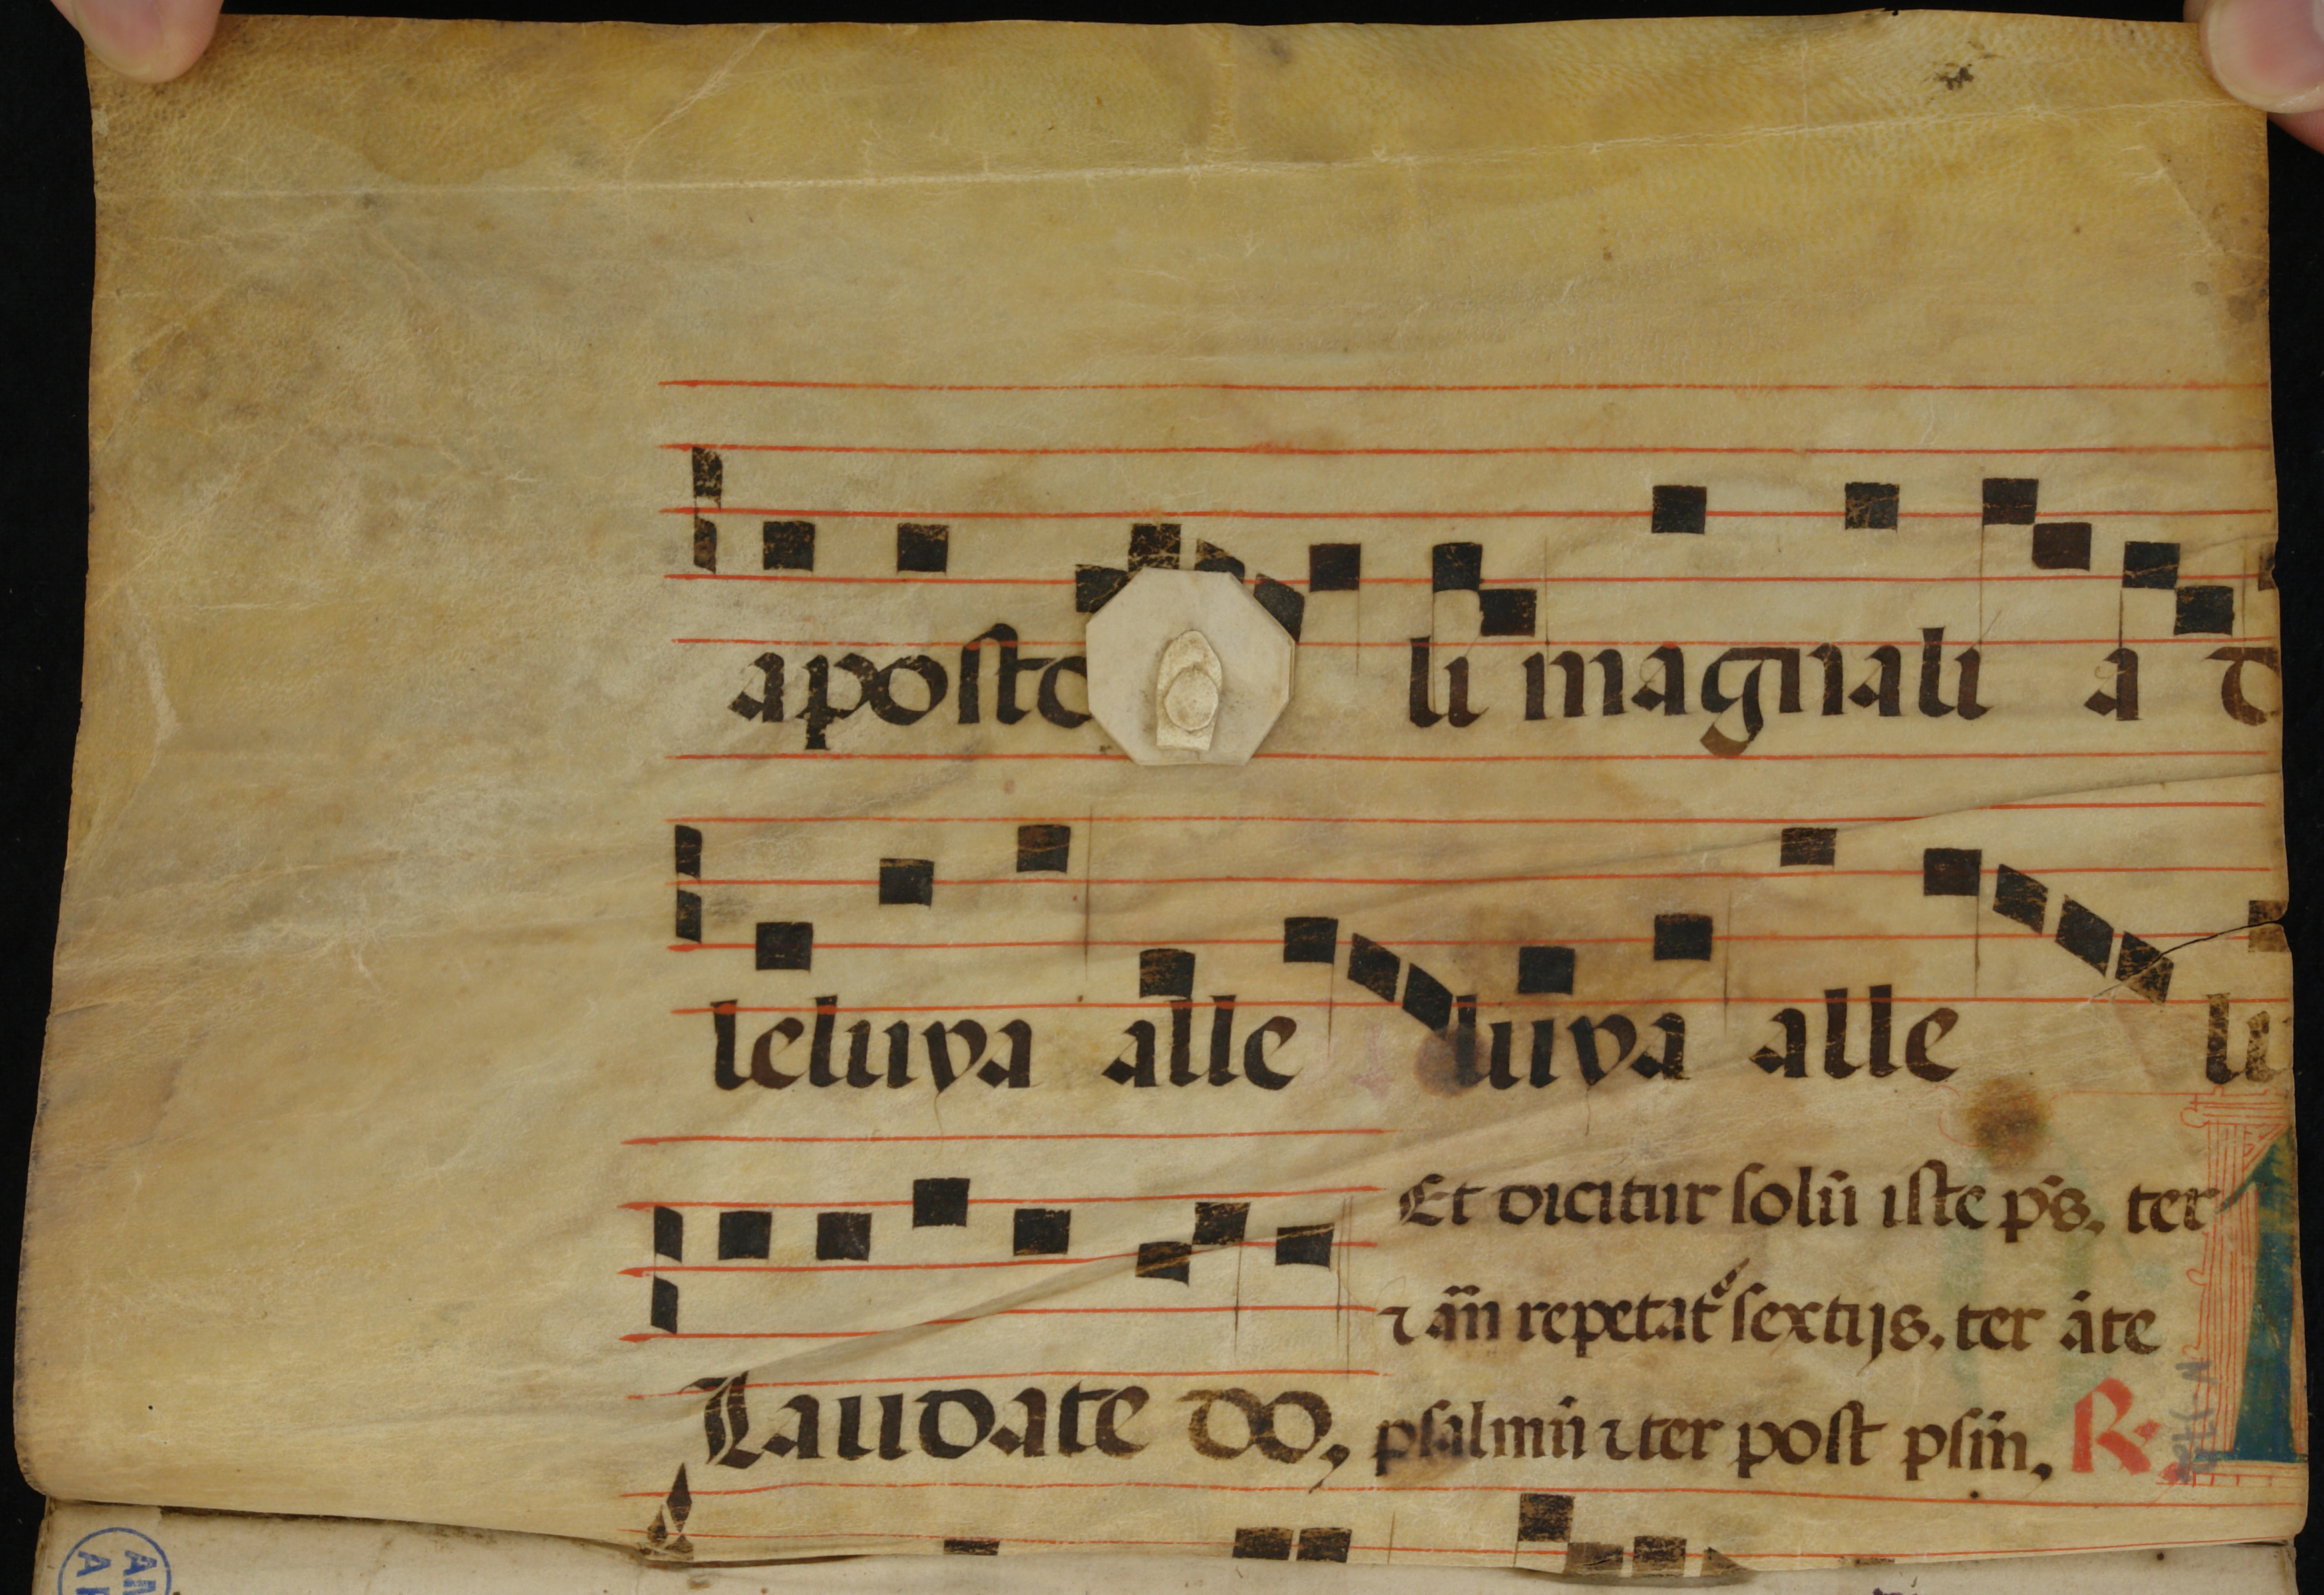 aposto li magnali a d
leluya alle luiya alle lu
Et dicitur solū iste p̄s. ter
⁊ añ repetat᷑ sextijs. ter āte
Laudate do, psalmū ⁊ ter post psm̄. R